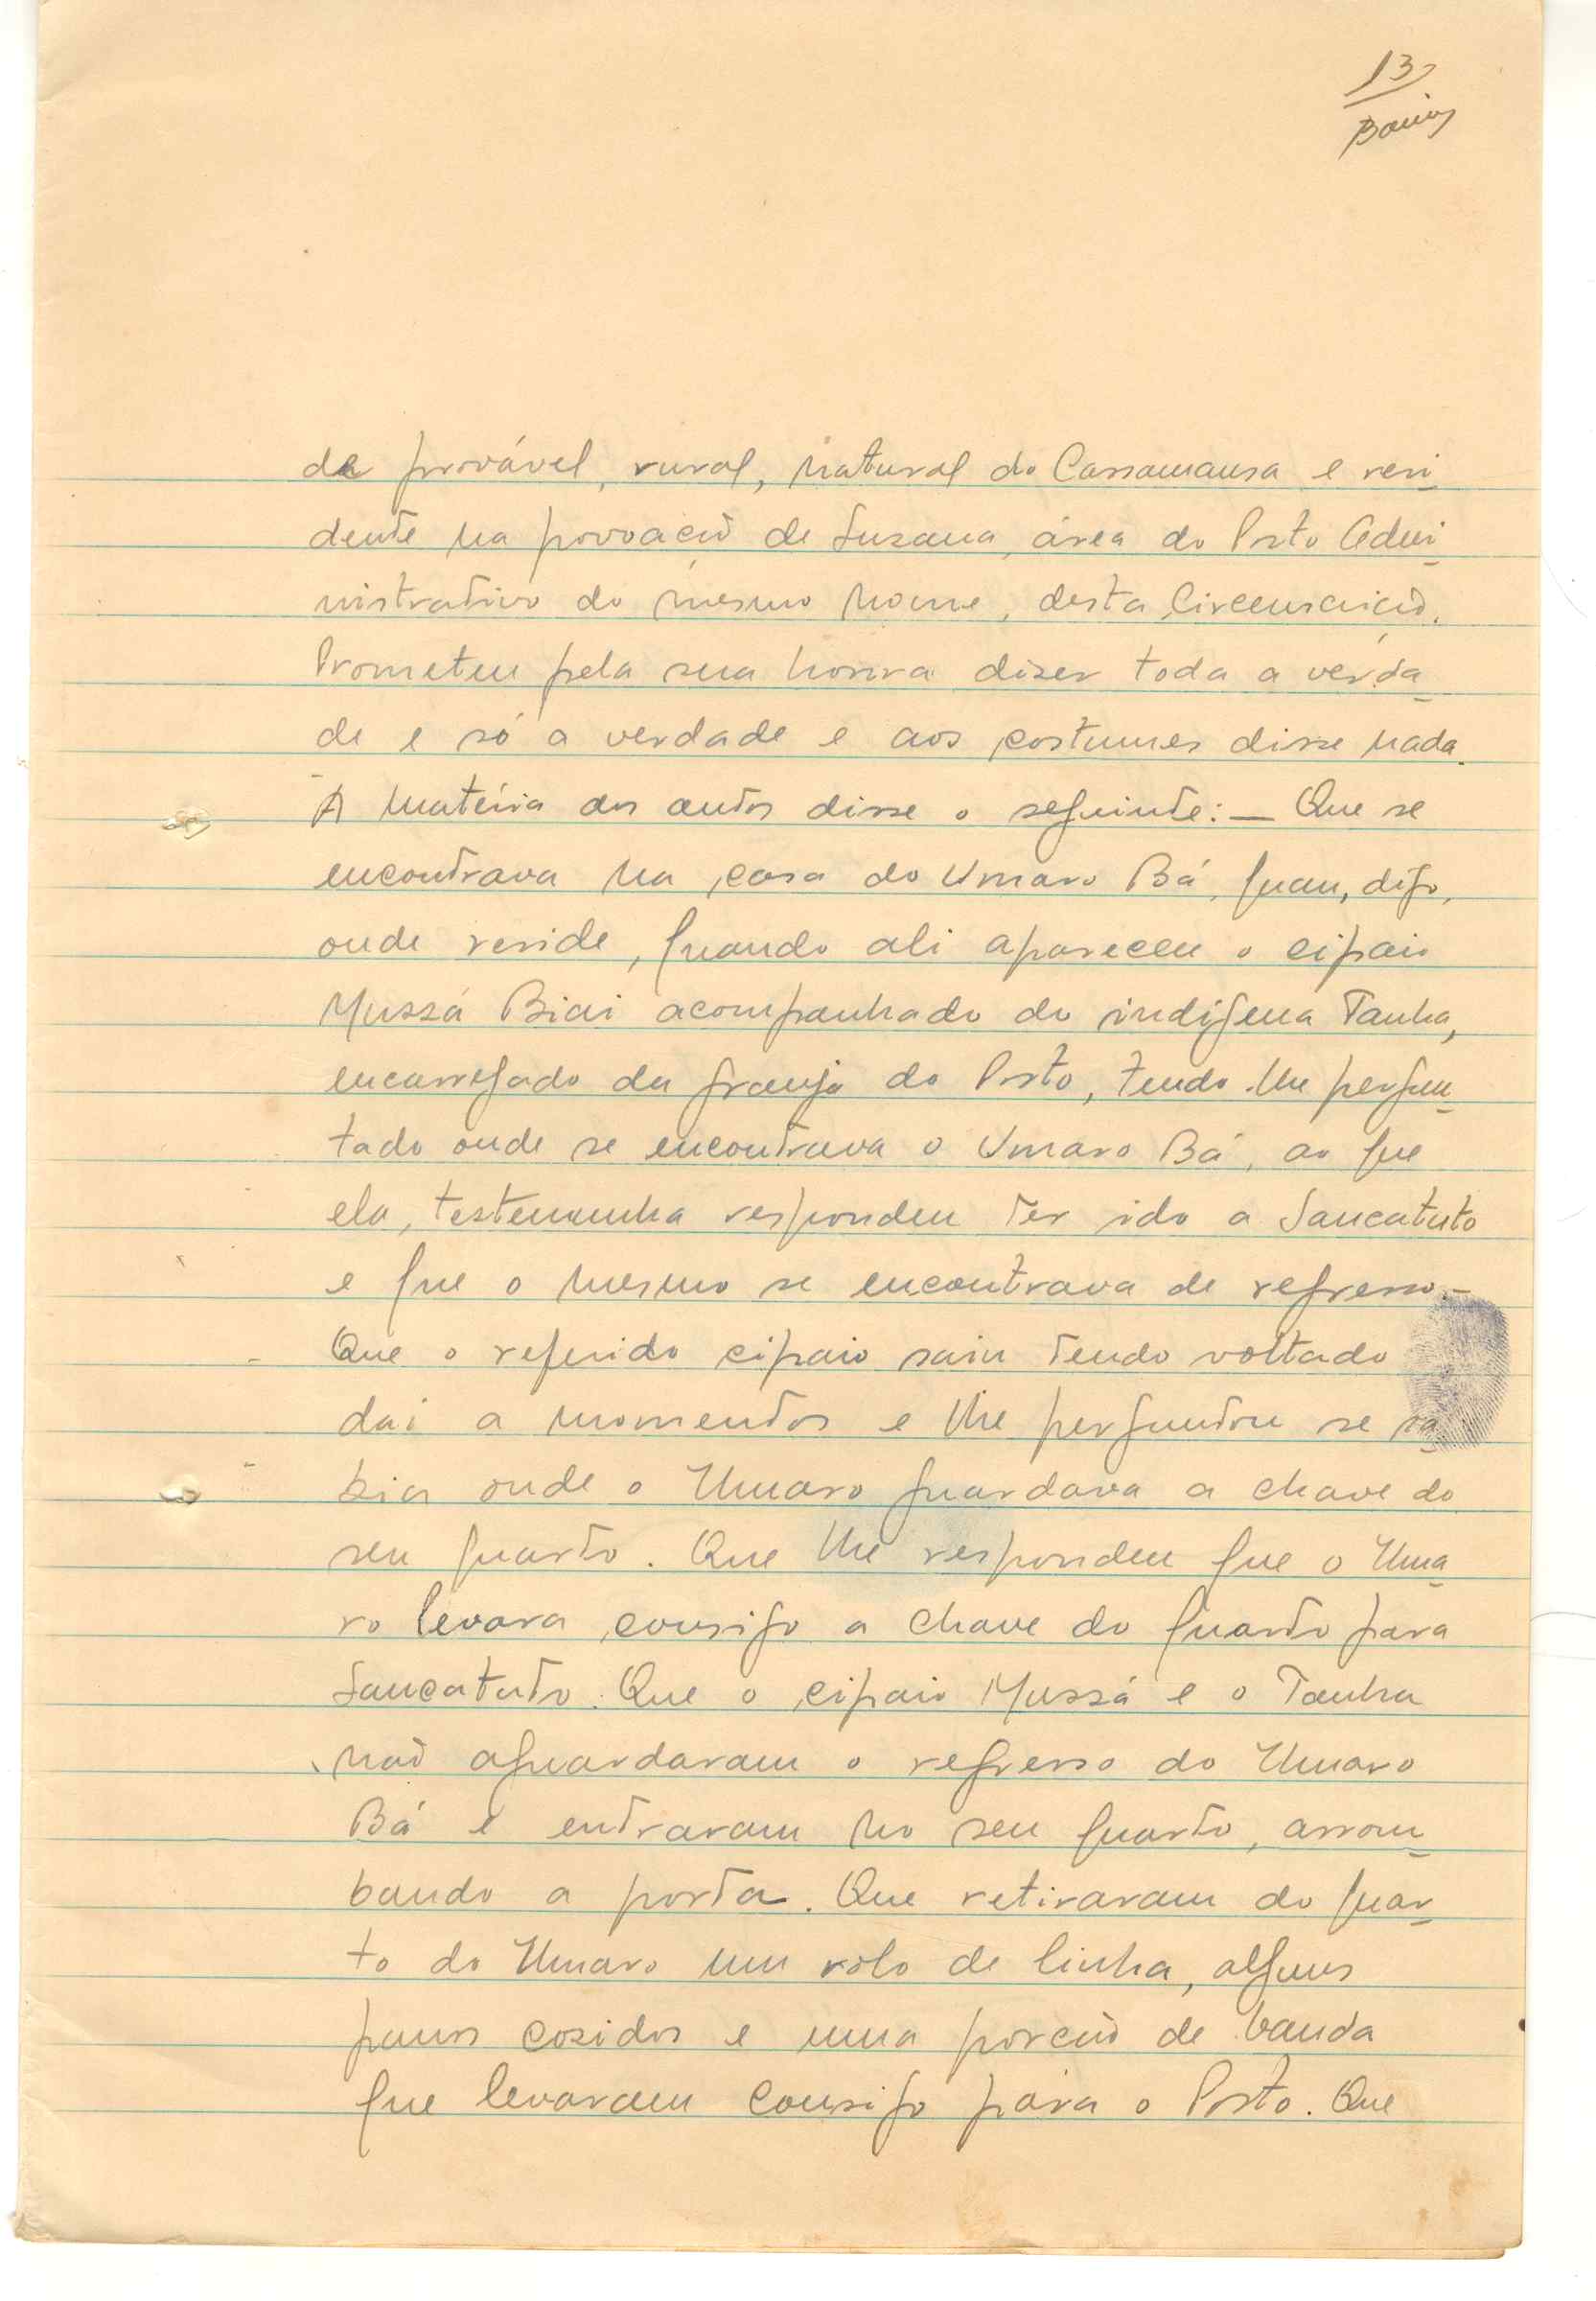 13
de provável, rural, natural do Cassamansa e resi-
dente na povoação de Suzana, área do Posto Admi-
nistrativo do mesmo nome, desta Circunscrição.
Prometeu pela sua honra dizer toda a verda-
de e só a verdade e aos costumes disse nada.
À matéria dos autos disse o seguinte: — Que se
encontrava na casa do Umaro Bá, quan, digo,
onde reside, quando ali apareceu o cipaio
Mussá Biai acompanhado do indígena Tanha,
encarregado da granja do Posto, tendo-lhe pergun-
tado onde se encontrava o Umaro Bá, ao que
ela, testemunha respondeu ter ido a Sancatuto
e que o mesmo se encontrava de regresso.-
Que o referido cipaio saiu tendo voltado
dai a momentos e lhe perguntou se sa-
bia onde o Umaro guardava a chave do
seu quarto. Que lhe respondeu que o Uma-
ro levara consigo a chave do quarto para
Sancatuto. Que o cipaio Mussá e o Tanha
não aguardaram o regresso do Umaro
Bá e entraram no seu quarto, arrom-
bando a porta. Que retiraram do quar-
to do Umaro um rolo de linha, alguns
panos cosidos e uma porção de banda
que levaram consigo para o Posto. Que